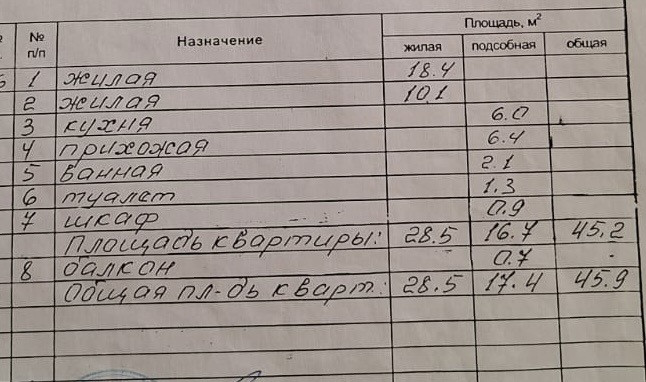 № п/п Назначение Площадь, м²
жилая подсобная общая
1 жилая 18.4
2 жилая 10.1
3 кухня 6.0
4 прихожая 6.4
5 ванная 2.1
6 туалет 1.3
7 шкаф 0.9
Площадь квартиры: 28.5 16.7 45.2
8 балкон 0.7
Общая пл-дь кварт.: 28.5 17.4 45.9